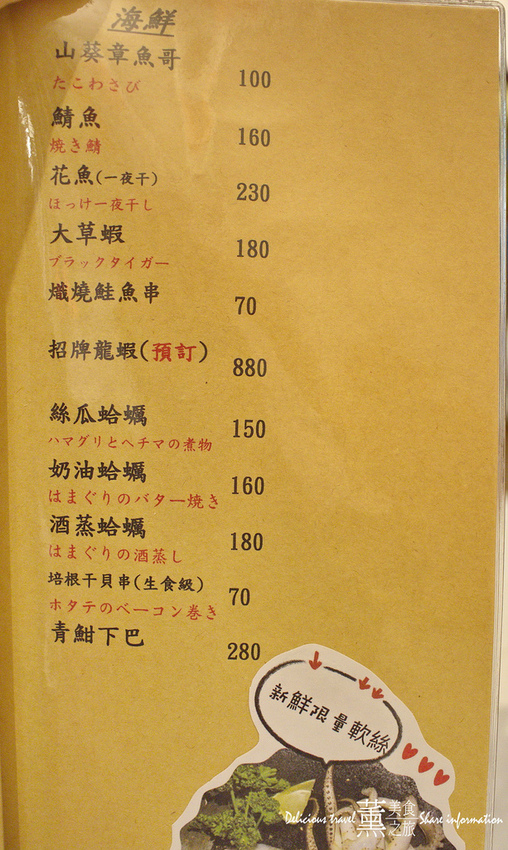 海鮮
山葵章魚哥
たこわさび
100
鯖魚
焼き鯖
160
花魚(一夜干)
ほっけ一夜干し
230
大草蝦
ブラックタイガー
180
熾燒鮭魚串
70
招牌龍蝦(預訂)
880
絲瓜蛤蠣
ハマグリとヘチマの煮物
150
奶油蛤蠣
はまぐりのバター焼き
160
酒蒸蛤蠣
はまぐりの酒蒸し
180
培根干貝串(生食級)
ホタテのベーコン巻き
70
青魽下巴
280
新鮮限量軟絲
Delicious travel 薰 美食之旅 Share information